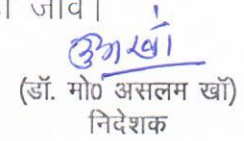 जावे।
(डॉ. मो0 असलम खॉ)
निदेशक